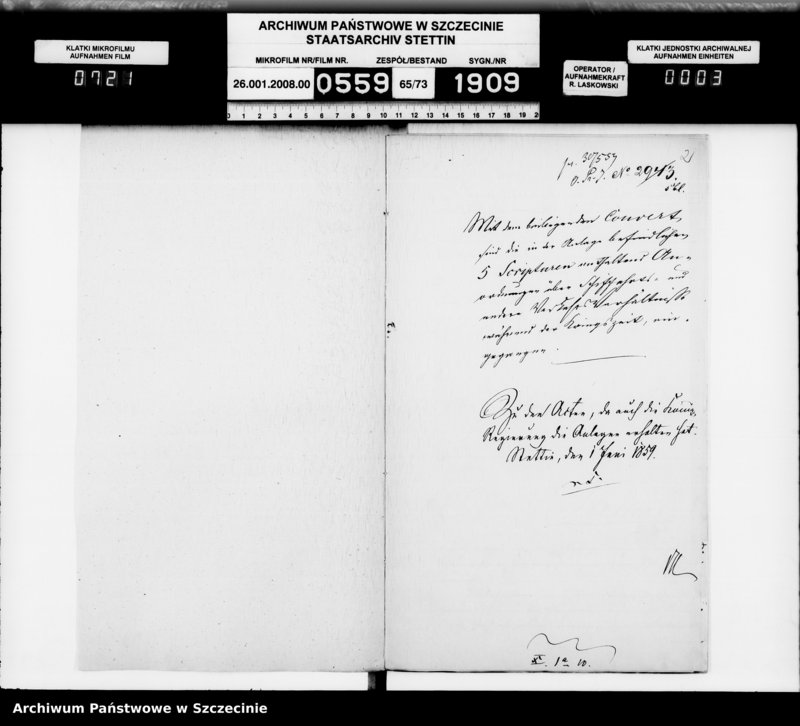 ARCHIWUM PAŃSTWOWE W SZCZECINIE
STAATSARCHIV STETTIN
KLATKI MIKROFILMU
AUFNAHMEN FILM
0721
MIKROFILM NR/FILM NR.
26.001.2008.00 0559
ZESPÓŁ/BESTAND
65/73
SYGN./NR
1909
OPERATOR /
AUFNAHMEKRAFT
R. LASKOWSKI
KLATKI JEDNOSTKI ARCHIWALNEJ
AUFNAHMEN EINHEITEN
0003
0 1 2 3 4 5 6 7 8 9 10 11 12 13 14 15 16 17 18 19 20
2
pr. 30/5 59
No 2943.
Mit dem beiliegenden Couvert
sind die in der Anlage befindlichen
5 Scripturen enthaltend An-
ordnungen über Schifffahrts- und
andere Verkehrs Verhältnisse
während der Kriegszeit, ein-
gegangen.
Zu den Akten, da auch die König.
Regierung die Anlagen erhalten hat.
Stettin, den 1 Juni 1859.
XI. 1a 10.
Archiwum Państwowe w Szczecinie